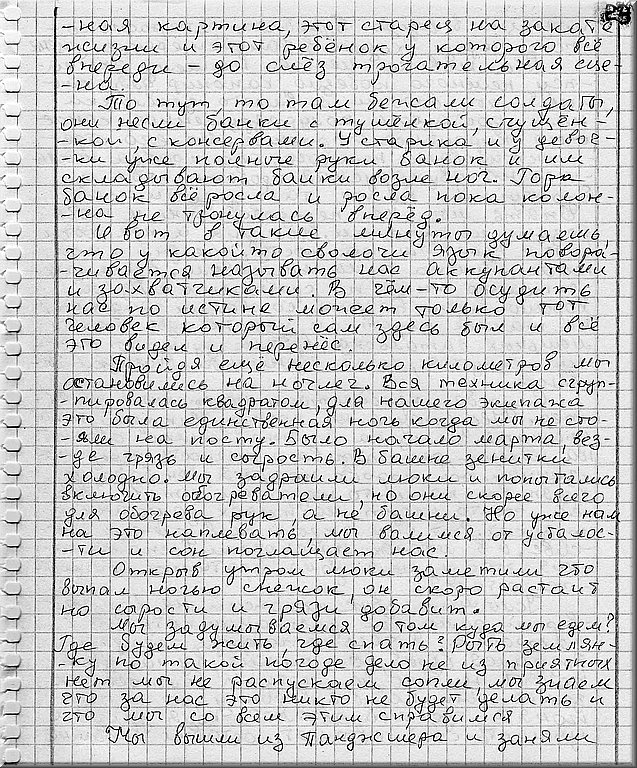 -ная картина, этот старец на закате
жизни и этот ребёнок у которого всё
впереди - до слёз трогательная сце-
-на.
То тут, то там бегали солдаты,
они несли банки с тушёнкой, сгущён-
-кой, с консервами. У старика и у девоч-
-ки уже полные руки банок и им
складывают банки возле ног. Гора
банок всё росла и росла пока колон-
-на не тронулась вперёд.
И вот в такие минуты думаешь,
что у какойто сволочи язык повора-
-чивается называть нас аккупантами
и захватчиками. В чём-то осудить
нас по истине может только тот
человек который сам здесь был и всё
это видел и перенёс.
Пройдя ещё несколько километров мы
остановились на ночлег. Вся техника сгруп-
-пировалась квадратом, для нашего экипажа
это была единственная ночь когда мы не сто-
-яли на посту. Было начало марта, вез-
-де грязь и сырость. В башне зенитки
холодно. Мы задраили люки и попытались
включить обогреватели, но они скорее всего
для обогрева рук, а не башни. Но уже нам
на это наплевать, мы валимся от усталос-
-ти и сон поглащает нас.
Открыв утром люки заметили что
выпал ночью снежок, он скоро растаит
но сырости и грязи добавит.
Мы задумываемся о том куда мы едем?
Где будем жить, где спать? Рыть землян-
-ку по такой погоде дело не из приятных
нет мы не распускаем сопли, мы знаем
что за нас это никто не будет делать и
что мы со всем этим справимся
Мы вышли из Панджшера и заняли